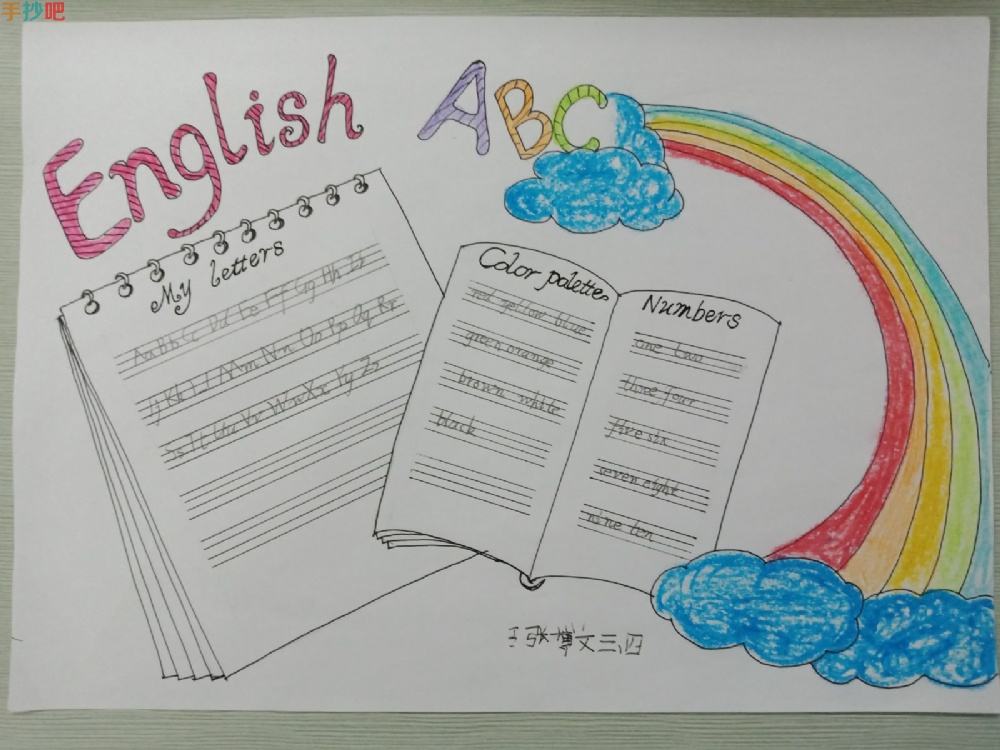 手抄吧
English
ABC
My letters
Aa Bb Cc Dd Ee Ff Gg Hh Ii
Jj Kk Ll Mm Nn Oo Pp Qq Rr
Ss Tt Uu Vv Ww Xx Yy Zz
Color palettes
red yellow blue
green orange
brown white
black
Numbers
one two
three four
five six
seven eight
nine ten
张博文三、四